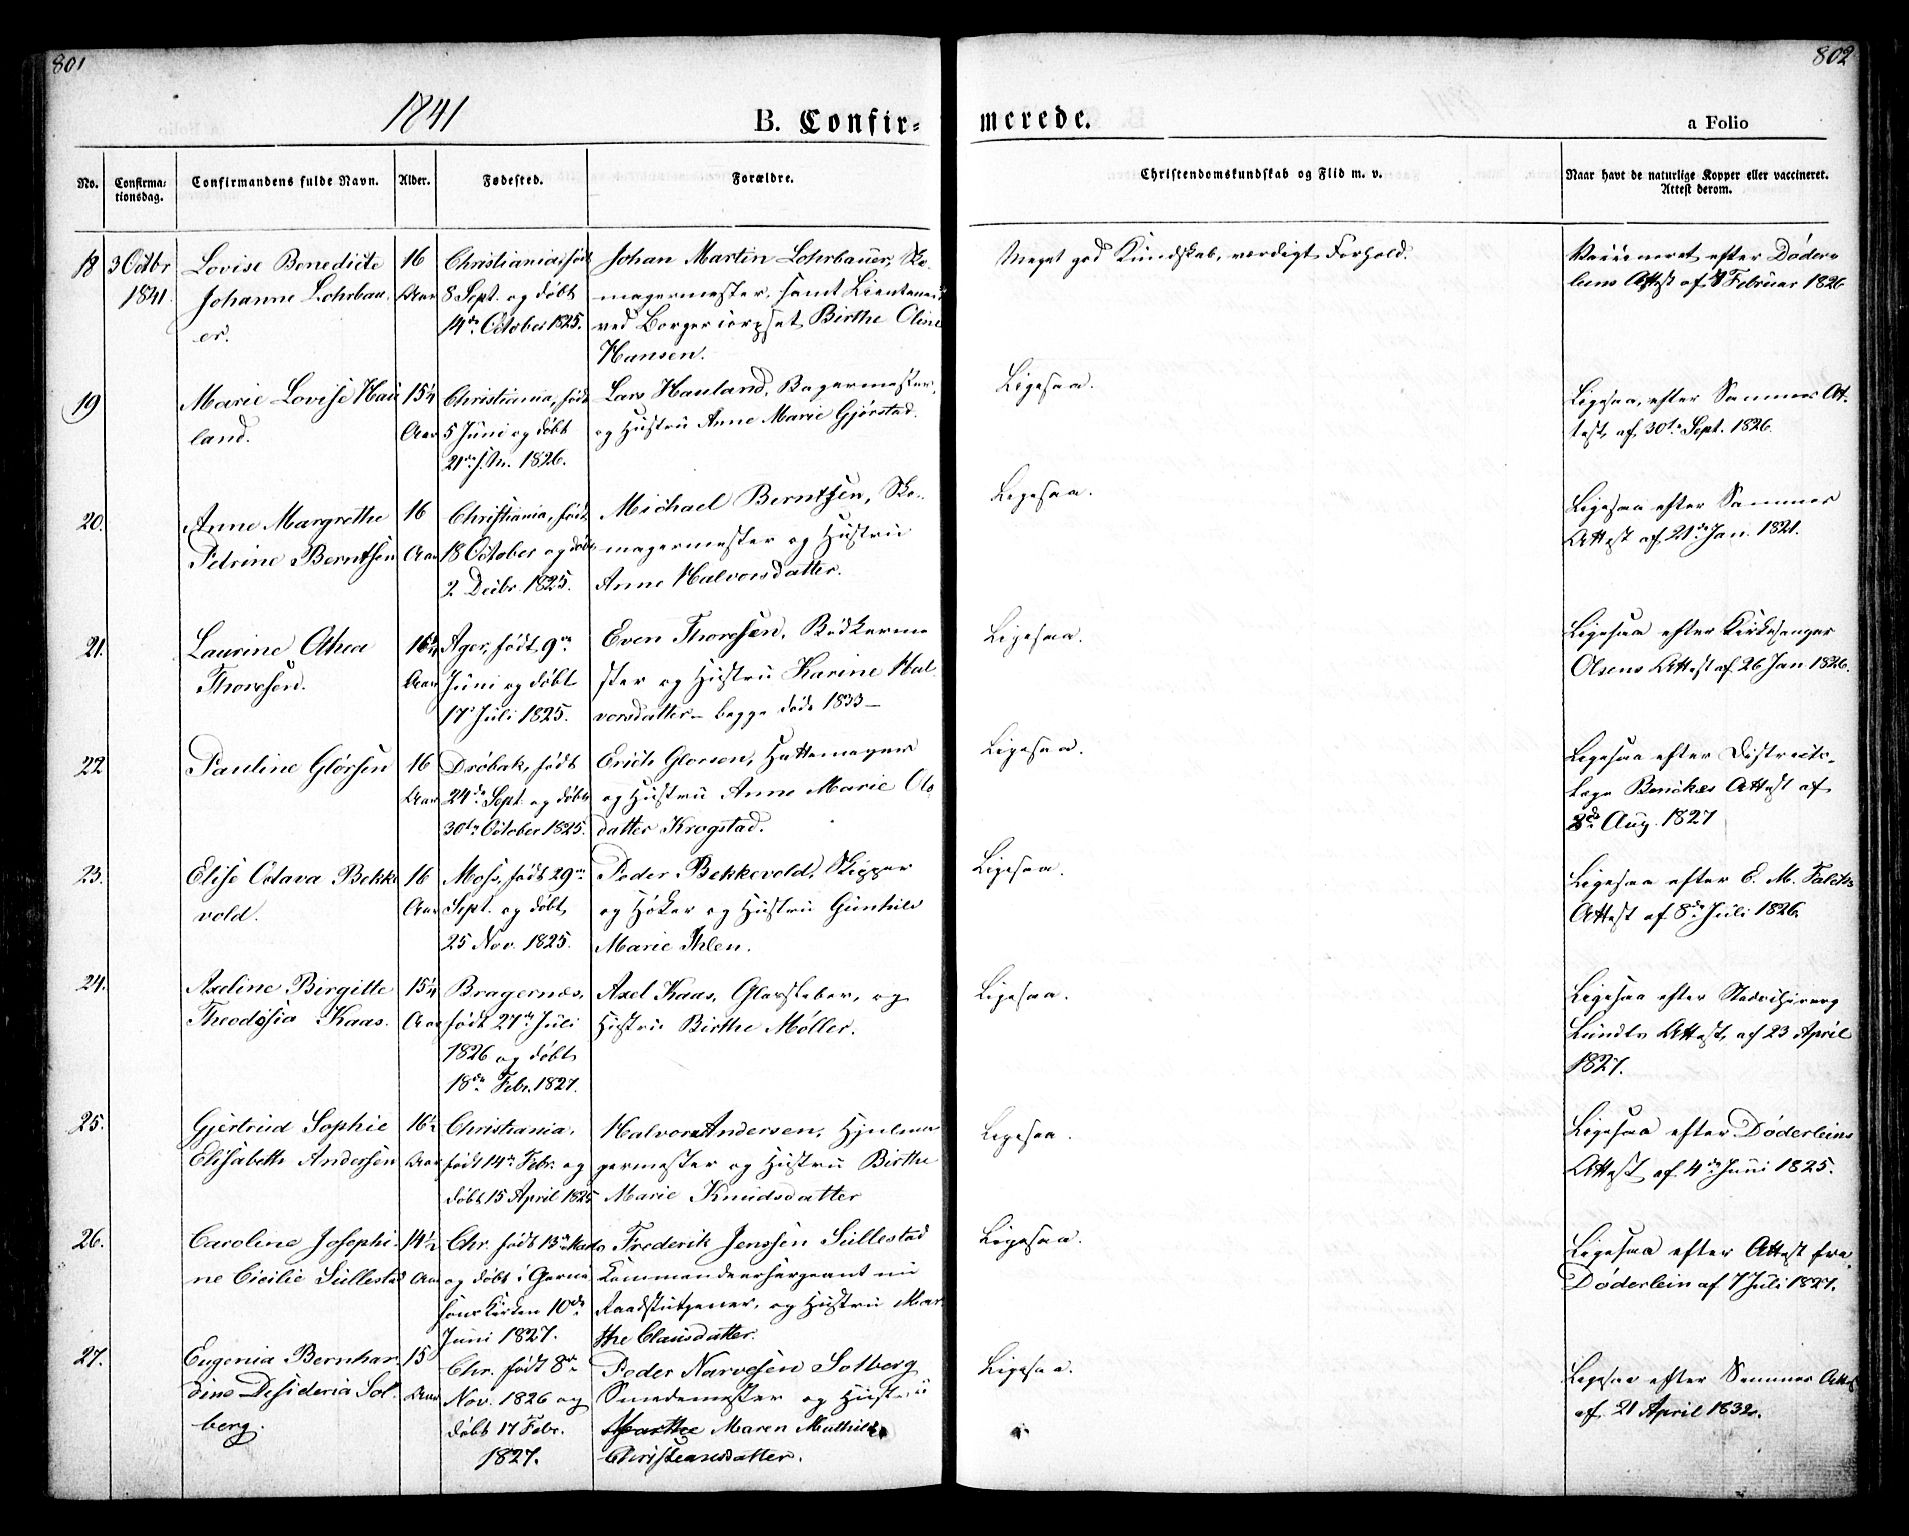 801
802
1841
B. Confir-
merede.
a Folio
No.
Confirma-
tionsdag.
Confirmandens fulde Navn.
Alder.
Fødested.
Forældre.
Christendomskundskab og Flid m. v.
Naar havt de naturlige Kopper eller vaccineret.
Attest derom.
18
3 Octbr
1841
Lovise Benedicte
Johanne Lohrbau-
er.
16
Aar
Christiania, født
8 Sept. og døbt
14de October 1825.
Johan Martin Lohrbauer, Sko-
magermester, samt Lieutenant
ved Borgercorpset Birthe Oline
Hansen.
Meget god Kundskab, værdigt Forhold.
Vaccineret efter Døder-
leins Attest af Februar 1826
19
Marie Lovise Hau
land.
15¼
Aar
Christiania, født
5 Juni og døbt
21de 1826.
Lars Hauland, Bagermester,
og Hustru Anne Marie Gjørstad.
Ligesaa.
Ligesaa, efter Sammes At-
test, af 30te Sept. 1826.
20.
Anne Margrethe
Petrine Berntsen
16
Aar
Christiania, født
18 October og døbt
2 Decbr. 1825.
Michael Berntsen, Sko-
magermester og Hustru
Anne Halvorsdatter.
Ligesaa.
Ligesaa efter Sammes
Attest af 21de Jan. 1821.
21.
Laurine Othea
Thoresen.
16¼
Aar
Ager, født 9de
Juni og døbt
17 Juli 1825.
Even Thoresen, Bødkerme
ster og Hustru Karine Hal
vorsdatter – begge døde 1833 –
Ligesaa.
Ligesaa efter Kirkesanger
Olsens Attest af 26 Jan 1826.
22
Pauline Glørsen
16
Aar
Drøbak, født
24de Sept. og døbt
30te October 1825.
Erich Glorsen, Hattemager
og Hustru Anne Marie Ols
datter Krogstad.
Ligesaa.
Ligesaa efter Districts-
læge Attest af
2de Aug. 1827
23.
Elise Octava Bekke
vold.
16
Aar
Moss, født 29de
Sept. og døbt
25 Nov. 1825.
Peder Bekkevold, Skipper
og Høker og Hustru Gunhild
Marie Ihlen.
Ligesaa.
Ligesaa efter C. M. Falchs
Attest af 8de Juli 1826.
24.
Axeline Birgitte
Theodosia Kaas.
15¼
Aar
Bragernæs,
født 27de Juli
1826 og døbt
18de Febr. 1827.
Axel Kaas, Glarskaber, og
Hustru Birthe Møller.
Ligesaa.
Ligesaa efter Stadschirurg
Lundts Attest, af 23 April
1827.
25.
Gjertrud Sophie
Elisabeth Andersen
16½
Aar
Christiania,
født 14de Febr. og
døbt 15 April 1825
Halvor Andersen, Hjulma
germester og Hustru Birthe
Marie Knudsdatter
Ligesaa.
Ligesaa efter Døderleins
Attest af 4de Juni 1825.
26.
Caroline Josephi-
ne Cicilie Sullestad
14½
Aar
Chr. født 13de Marts
og døbt i Garni
sons Kirken 10de
Juni 1827.
Frederik Jenssen Sullestad
Commandeersergeant nu
Raadstutjener, og Hustru Mar
the Clausdatter.
Ligesaa.
Ligesaa efter Attest fra
Døderlein af 7 Juli 1827.
27.
Eugenia Bernhar
dine Desideria Sol-
berg.
15
Aar
Chr. født 8de
Nov. 1826 og
døbt 17 Febr.
1827.
Peder Narvesen Solberg
Smedemester og Hustru
Marthe Maren Mathilde
Christiansdatter.
Ligesaa.
Ligesaa efter Sammes Attest
af 21 April 1832.